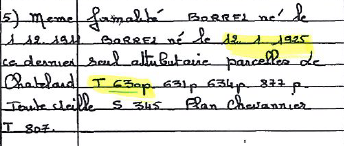 5) Meme formalité BORREL né le
1 12 1911 BORREL né le 12 1 1925
ce dernier seul attributaire parcelles de
Chatelard T 630p 631p 634p 877p
Toute vieille S 345 Plan Chevannier
T 807.